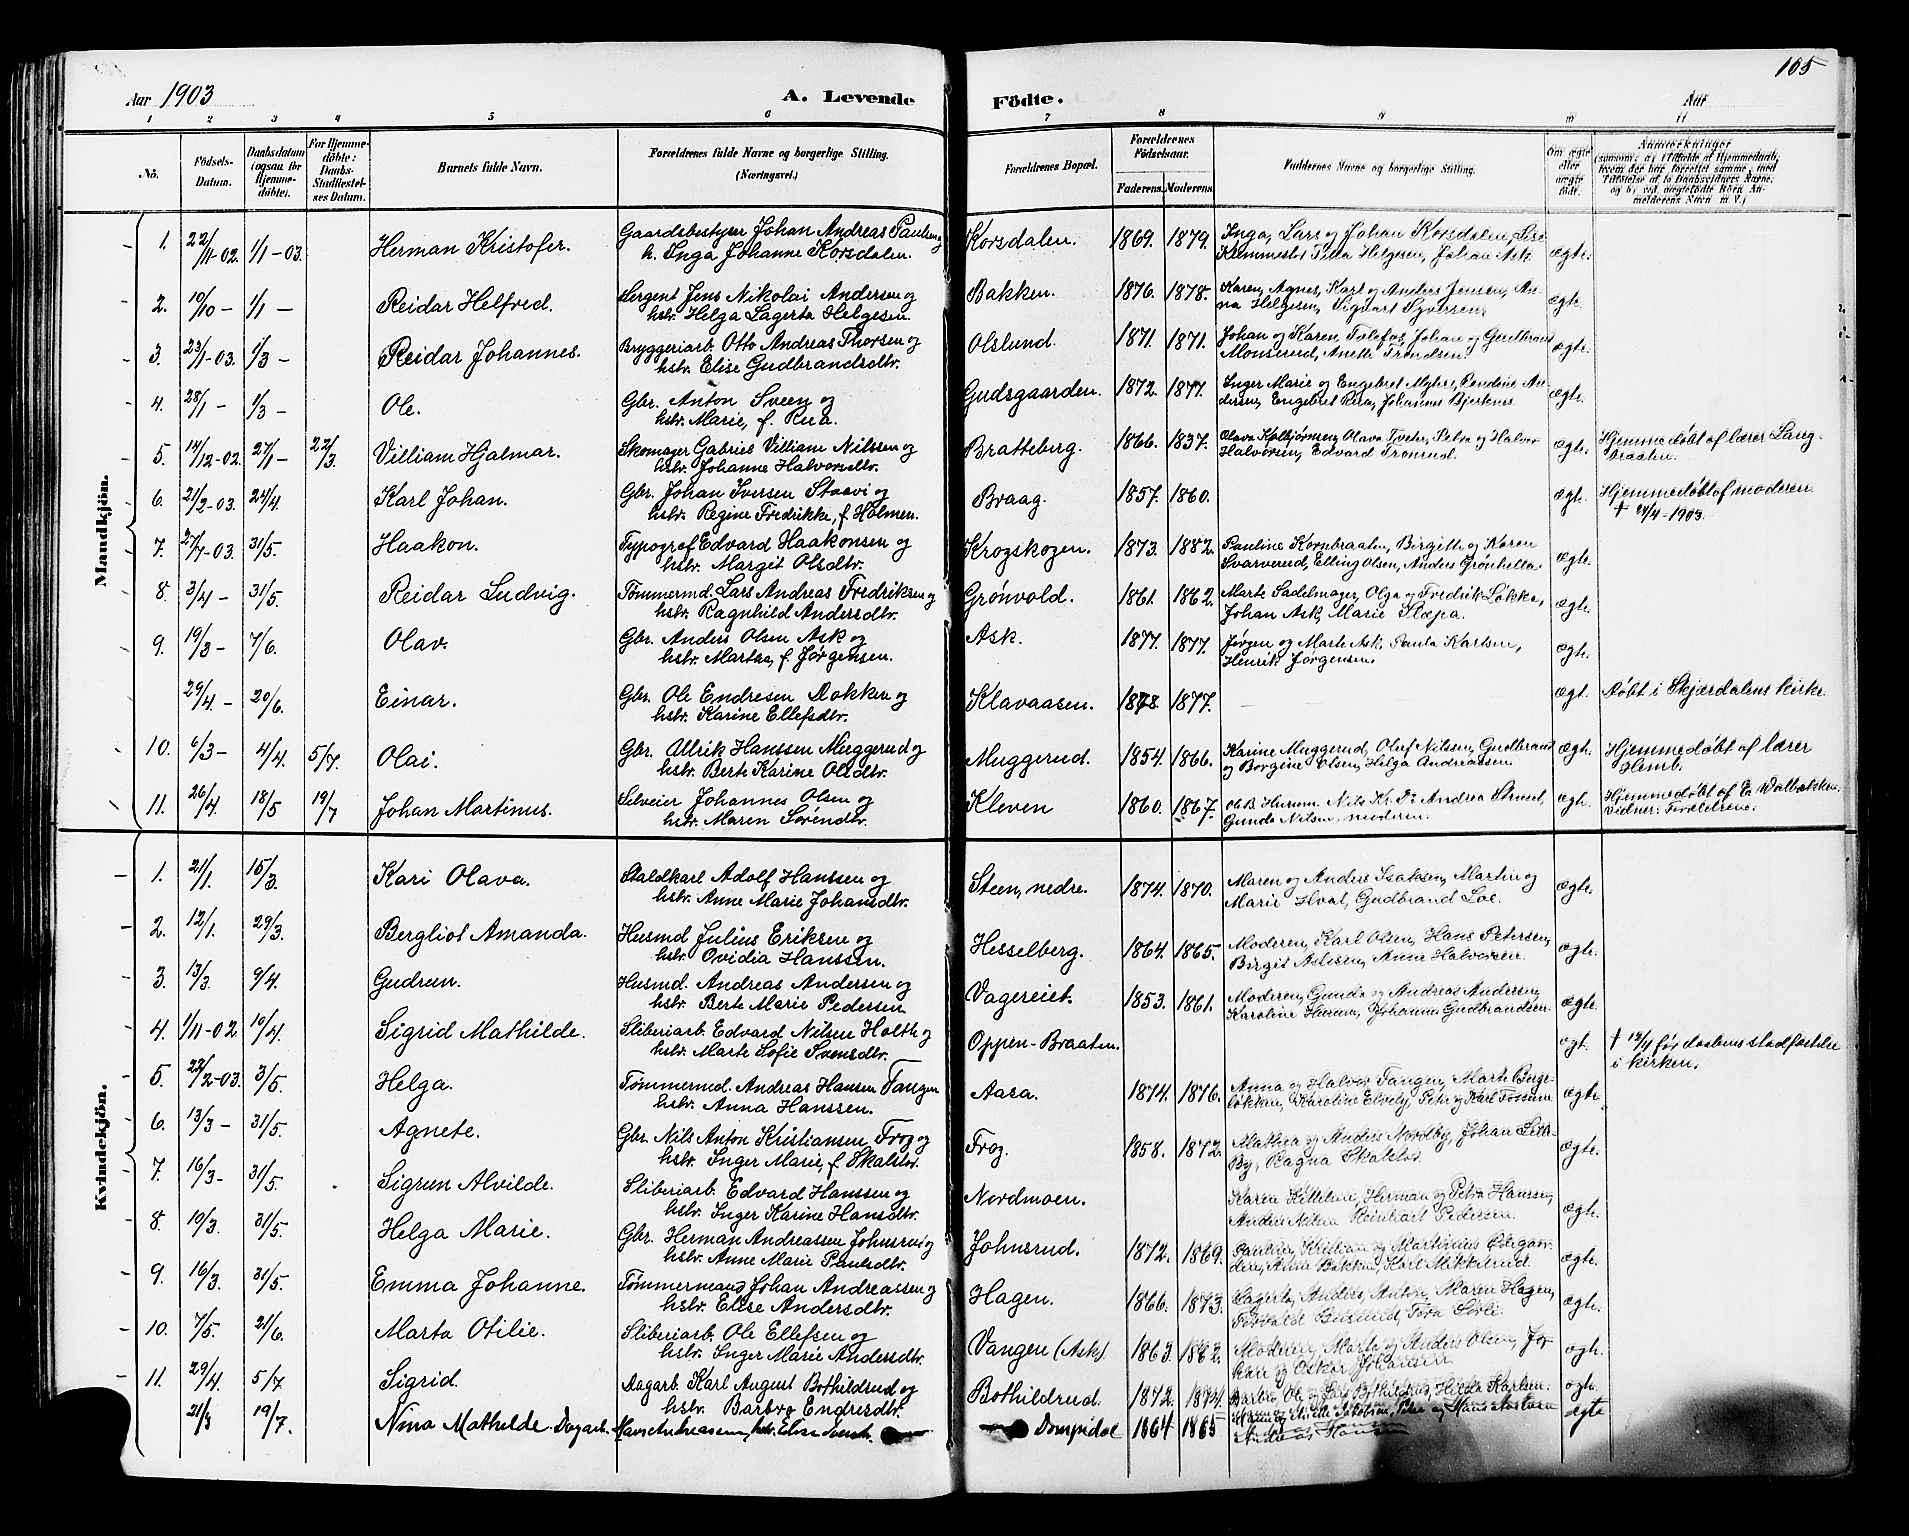 105
Aar 1903
A. Levende
Födte.
Aar
1 2 3 4 5 6 7 8 9 10 11
No.
Födsels-Datum.
Daabsdatum (ogsaa for Hjemmedöbte).
For Hjemmedöbte: Daabs-Stadfæstelses Datum.
Barnets fulde Navn.
Forældrenes fulde Navne og borgerlige Stilling. (Næringsvei.)
Forældrenes Bopæl.
Forældrenes Födselsaar.
Faderens. Moderens.
Faddernes Navne og borgerlige Stilling.
Om ægte eller uægte födt.
Anmærkninger
Mandkjön.
1. 22/11-02. 1/1-03. Herman Kristofer. Gaardsbestyrer Johan Andreas Paulsen og h. Inga Johanne Korsdalen. Korsdalen. 1869. 1879. Inga, Lars og Johan Korsdalen, Helgesen, Johan Ask. ægte.
2. 10/10- 1/1- Reidar Helfred. Sergent Jens Nikolai Andersen og hstr. Helga Lagerta Helgesen. Bakken. 1876. 1878. Karen, Agnes, Karl og Anders Jensen, Anna Helgesen, Sigvart Syversen. ægte.
3. 23/1-03. 1/3- Reidar Johannes. Bryggeriarb. Otto Andreas Thorsen og hstr. Elise Gudbrandsdtr. Olslund. 1871. 1871. Johan og Karen Tolefos, Johan og Gudbrand Monserud, Anette Trondsen. ægte.
4. 28/1- 1/3- Ole. Gbr. Anton Sveen og hstr. Marie, f. Rua. Gudsgaarden. 1872. 1877. Inger Marie og Engebret Myhre, Andersen, Engebret Rua, Johannes Bjerknes. ægte.
5. 14/12-02. 27/1- 22/3. Villiam Hjalmar. Skomager Gabriel Villiam Nilssen og hstr. Johanne Halvorsdtr. Bratteberg. 1866. 1837. Olava Kolbjørnsen, Olava Tveter, Petra og Halvor Halvorsen, Edvard Tronrud. ægte. Hjemmedøbt af lærer Langbraaten.
6. 21/2-03. 24/4. Karl Johan. Gbr. Johan Iversen Staavi og hstr. Regine Fredrikke, f. Holmen. Braag. 1857. 1860. ægte. Hjemmedøbt af moderen. † 24/4-1903.
7. 27/7-03. 31/5. Haakon. Typograf Edvard Haakonsen og hstr. Margit Olsdtr. Krogskogen. 1873. 1882. Pauline Kornbraaten, Birgitte og Karen Svarverud, Elling Olsen, Anders Grønhella. ægte.
8. 3/4- 31/5. Reidar Ludvig. Tømmermd. Lars Andreas Fredriksen og hstr. Ragnhild Andersdtr. Grønvold. 1861. 1862. Marte Sadelmager, Olga og Fredrik Løkke, Johan Ask, Marie Plæpa. ægte.
9. 19/3- 7/6. Olav. Gbr. Anders Olsen Ask og hstr. Martha, f. Jørgensen. Ask. 1877. 1877. Jørgen og Marte Ask, Paula Karlsen, Henrik Jørgensen. ægte.
29/4- 20/6. Einar. Gbr. Ole Endresen Dokken og hstr. Karine Ellefsdtr. Klavaasen. 1878. 1877. ægt. Døbt i Skjærdalens kirke
10. 6/3- 4/4. 5/7. Olai. Gbr. Alrik Hanssen Muggerud og hstr. Berte Karine Olsdtr. Muggerud. 1854. 1866. Karine Muggerud, Oluf Nilsen, Gudbrand og Borgine Olsen, Helga Andreassen. ægte. Hjemmedøbt af lærer Hemb.
11. 26/4. 18/5 19/7 Johan Martinus. Selveier Johannes Olsen og hstr. Maren Sørensdtr. Kleven 1860. 1867. Gunda Nilsen, moderen. ægte. Hjemmedøbt af E. Dalbakken. Vidner: Forældrene.
Kvindekjön.
1. 21/1. 15/3. Kari Olava. Staldkarl Adolf Hanssen og hstr. Anne Marie Johansdtr. Steen, nedre. 1874. 1870. Maren og Anders Isaksen, Martin og Marie Hval, Gudbrand Loe. ægte.
2. 12/1. 29/3. Bergliot Amanda. Husmd Julius Eriksen og hstr. Ovidia Hanssen. Hesselberg. 1864. 1865. Moderen, Karl Olsen, Hans Petersen, Birgit Aslesen, Anne Halvorsen. ægte.
3. 13/3. 9/4. Gudrun. Husmd. Andreas Andersen og hstr. Berte Marie Pedersen Vagereiet. 1853. 1861. Moderen, Gunda og Andreas Andersen, Karoline Hurum, Johannes Gudbrandsen. ægte.
4. 1/11-02. 19/4. Sigrid Mathilde. Sliberiarb. Edvard Nilsen Holth og hstr. Marte Sofie Svensdtr. Oppen-Braaten. ægt. † 12/4 før daabens stadfæstelse i kirken.
5. 22/2-03. 3/5. Helga. Tømmermd. Andreas Hansen Tangen hstr. Anna Hanssen. Aasa. 1874. 1876. Anna og Halvor Tangen, Marte Bergeløkken, Karoline Elvely, Peter og Karl Fossum. ægte.
6. 13/3- 31/5. Agnete. Gbr. Nils Anton Kristiansen Frog og hstr. Inger Marie, f. Skalstad. Frog. 1858. 1872. Mathea og Anders Nordby, Johan Lilleby, Ragna Skalstad. ægte.
7. 16/3- 31/5. Sigrun Alvilde. Sliberiarb. Edvard Hanssen og hstr. Inger Karine Hansdtr. Nordmoen. Karen Kittelsen, Herman og Petra Hanssen, Anders Nilsen Reinhart Pedersen. ægte.
8. 19/3. 31/5. Helga Marie. Gbr. Herman Andreassen Johnsrud og hstr. Anne Marie Paulsdtr. Johnsrud. 1872. 1869. Pauline, Kristian og Martinius Anne Bakken, Karl Mikkelrud. ægte.
9. 16/3. 31/5. Emma Johanne. Tømmermand Johan Andreassen og hstr. Elise Andersdtr. Hagen. 1866. 1873. Lagerta, Anders, Anton, Maren Hagen, Torvald Busund, Tora Sørli. ægte.
10. 7/5. 21/6. Marta Otilie. Sliberiarb. Ole Ellefsen og hstr. Inger Marie Andersdtr. Vangen (Ask). 1863. 1862. Moderen, Marta og Anders Olsen, Johan og Oskar Johansen. ægte.
11. 29/4. 5/7. Sigrid. Dagarb. Karl August Bothildrud og hstr. Barbro Endresdtr. Bothildrud. 1872. 1874. Barbro, Ole og Lars Bothildrud, Hilda Karlsen. ægte.
21/3 19/7. Nina Mathilde. Dagarb. Hans Andreassen, hstr. Elise Dompidal 1864 1865 Peter og Hans Andreas Hansen ægte